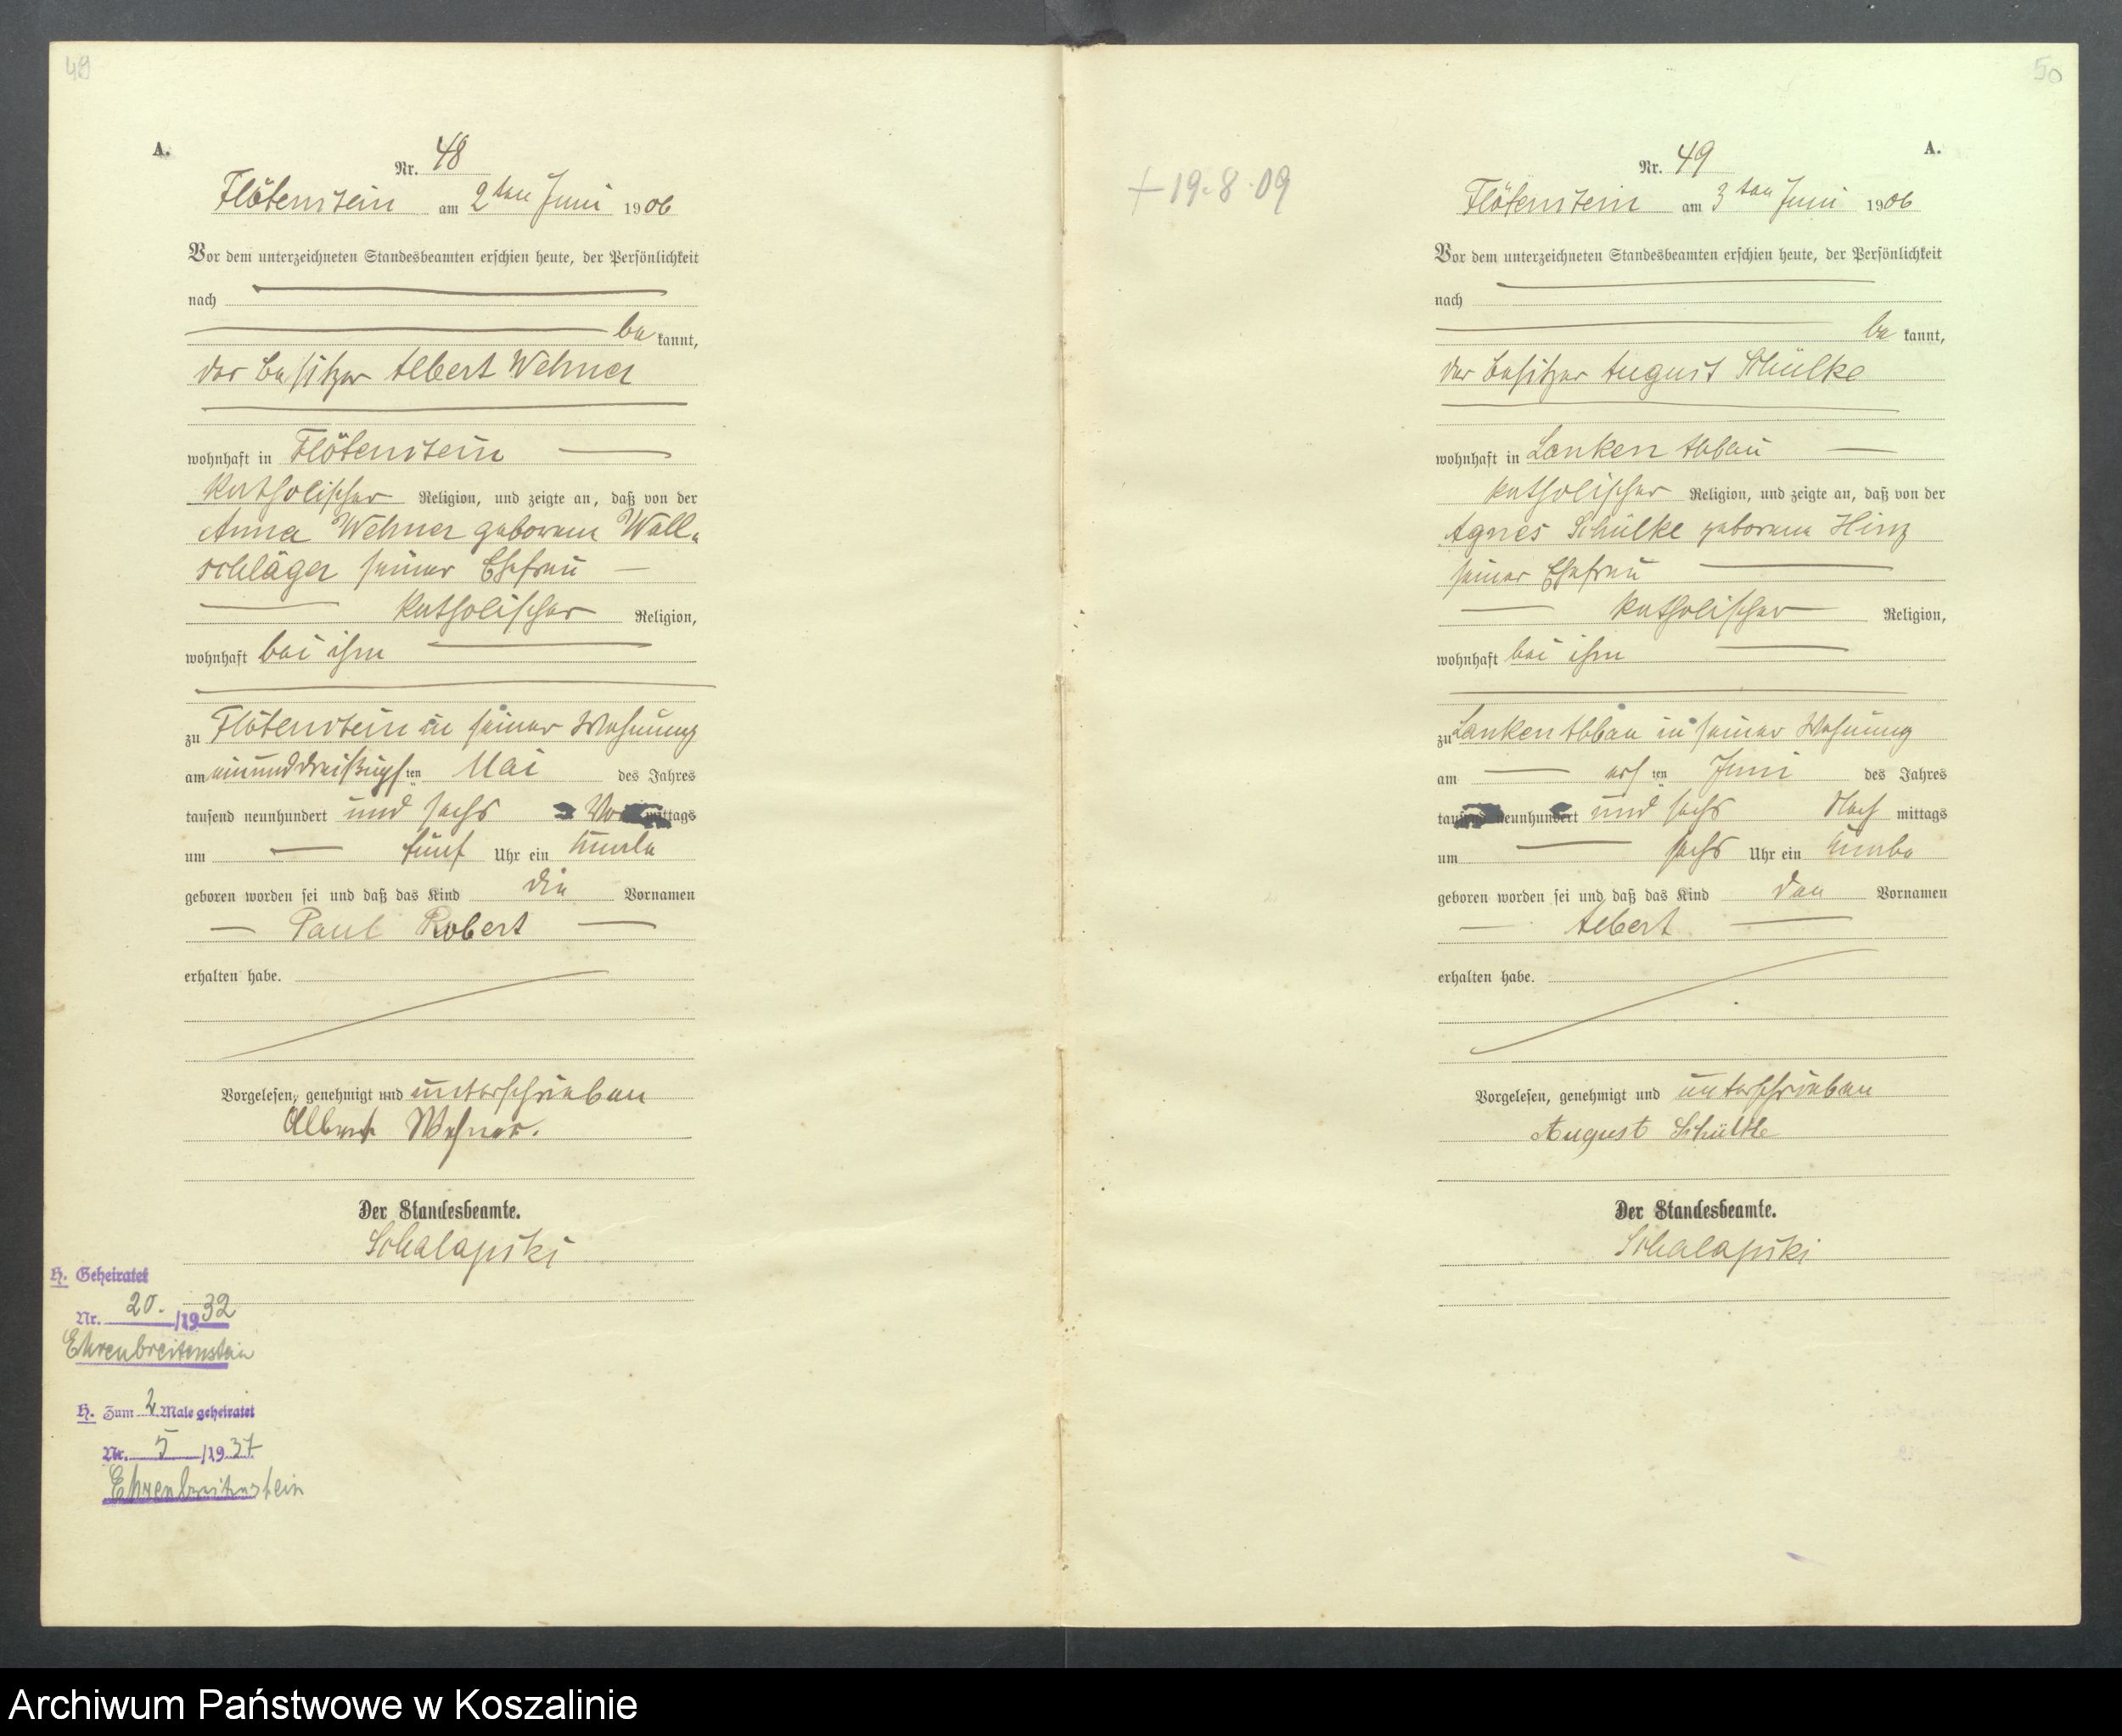 49
A.
Nr. 48
Flötenstein am 2ten Juni 1906
Vor dem unterzeichneten Standesbeamten erschien heute, der Persönlichkeit
nach
be kannt,
der Besitzer Albert Wehner
wohnhaft in Flötenstein
katholischer Religion, und zeigte an, daß von der
Anna Wehner geborene Well-
schläger seiner Ehefrau
katholischer Religion,
wohnhaft bei ihm
zu Flötenstein in seiner Wohnung
am einunddreißigsten Mai des Jahres
tausend neunhundert und sechs Vormittags
um fünf Uhr ein Knabe
geboren worden sei und daß das Kind die Vornamen
Paul Robert
erhalten habe.
Vorgelesen, genehmigt und unterschrieben
Albert Wehner.
Der Standesbeamte.
Schalapski
H. Geheiratet
Nr. 20. /1932
Ehrenbreitenstein
H. Zum 2 Male geheiratet
Nr. 5 /1937
Ehrenbreitenstein
50
A.
+ 19.8.09
Nr. 49
Flötenstein am 3ten Juni 1906
Vor dem unterzeichneten Standesbeamten erschien heute, der Persönlichkeit
nach
be kannt,
der Besitzer August Schülke
wohnhaft in Lanken Abbau
katholischer Religion, und zeigte an, daß von der
Agnes Schülke geborene Hinz
seiner Ehefrau
katholischer Religion,
wohnhaft bei ihm
zu Lanken Abbau in seiner Wohnung
am ersten Juni des Jahres
tausend neunhundert und sechs Nach mittags
um sechs Uhr ein Knabe
geboren worden sei und daß das Kind den Vornamen
Albert
erhalten habe.
Vorgelesen, genehmigt und unterschrieben
August Schülke
Der Standesbeamte.
Schalapski
Archiwum Państwowe w Koszalinie